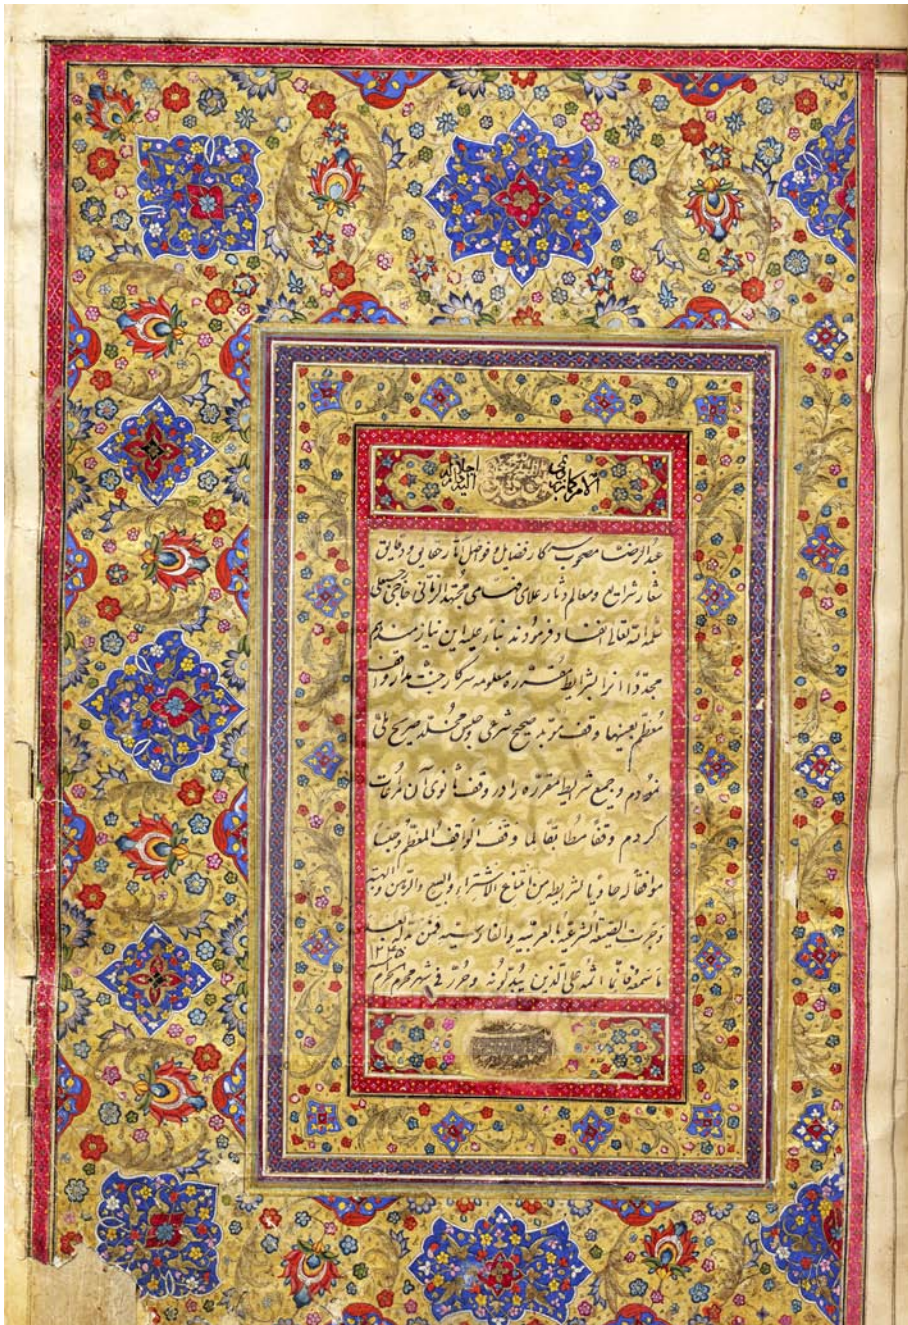 الامر کما رقم فی
عبدالرضا مصحوب سرکار فضایل و فواضل آثار حقایق و دقایق
شعار شرایع و معالم دثار علامی فهامی مجتهد الزمانی حاجی
سلمه الله تعالی انفاد فرمودند بناء علیه این نیازمند هم
مجددا آنرا بشرایط مقرره معلومه سرکار جنت مدار واقف
معظم بعینها وقف مؤبد صحیح شرعی و حبس مخلد صریح ملی
نمودم و جمیع شرایط مقرره را در وقف ثانوی آن مراعات
کردم وقفا مطابقا لما وقف الواقف المعظم و حبسا
موافقا له حاویا لشرایطه من امتناع الاشتراء و البیع و الرهن و الهبة
و جرت الصیغة الشرعیة بالعربیة و الفارسیة فمن بدله بعد
ما سمعه فانما اثمه علی الذین یبدلونه و حرر فی شهر محرم الحرام سنه ۱۲۴۵